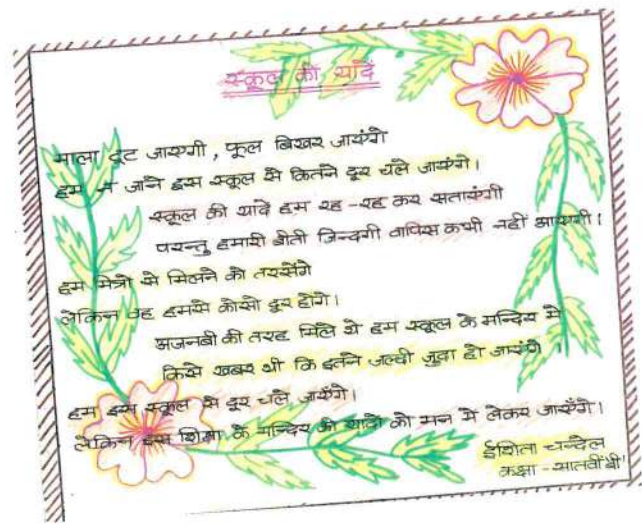 स्कूल की यादें
माला टूट जाएगी, फूल बिखर जाएंगे
हम न जाने इस स्कूल से कितने दूर चले जाएंगे।
स्कूल की यादे हम रह-रह कर सताएंगी
परन्तु हमारी बीती जिन्दगी वापिस कभी नहीं आएगी।
हम मित्रो से मिलने को तरसेंगे
लेकिन वह हमसे कोसो दूर होंगे।
अजनबी की तरह मिले थे हम स्कूल के मन्दिर मे
किसे खबर थी कि इतने जल्दी जुदा हो जाएंगे
हम इस स्कूल से दूर चले जाएँगे।
लेकिन इस शिक्षा के मन्दिर की यादो को मन मे लेकर जाएँगे।
ईशिता चन्देल
कक्षा - सातवीं बी'